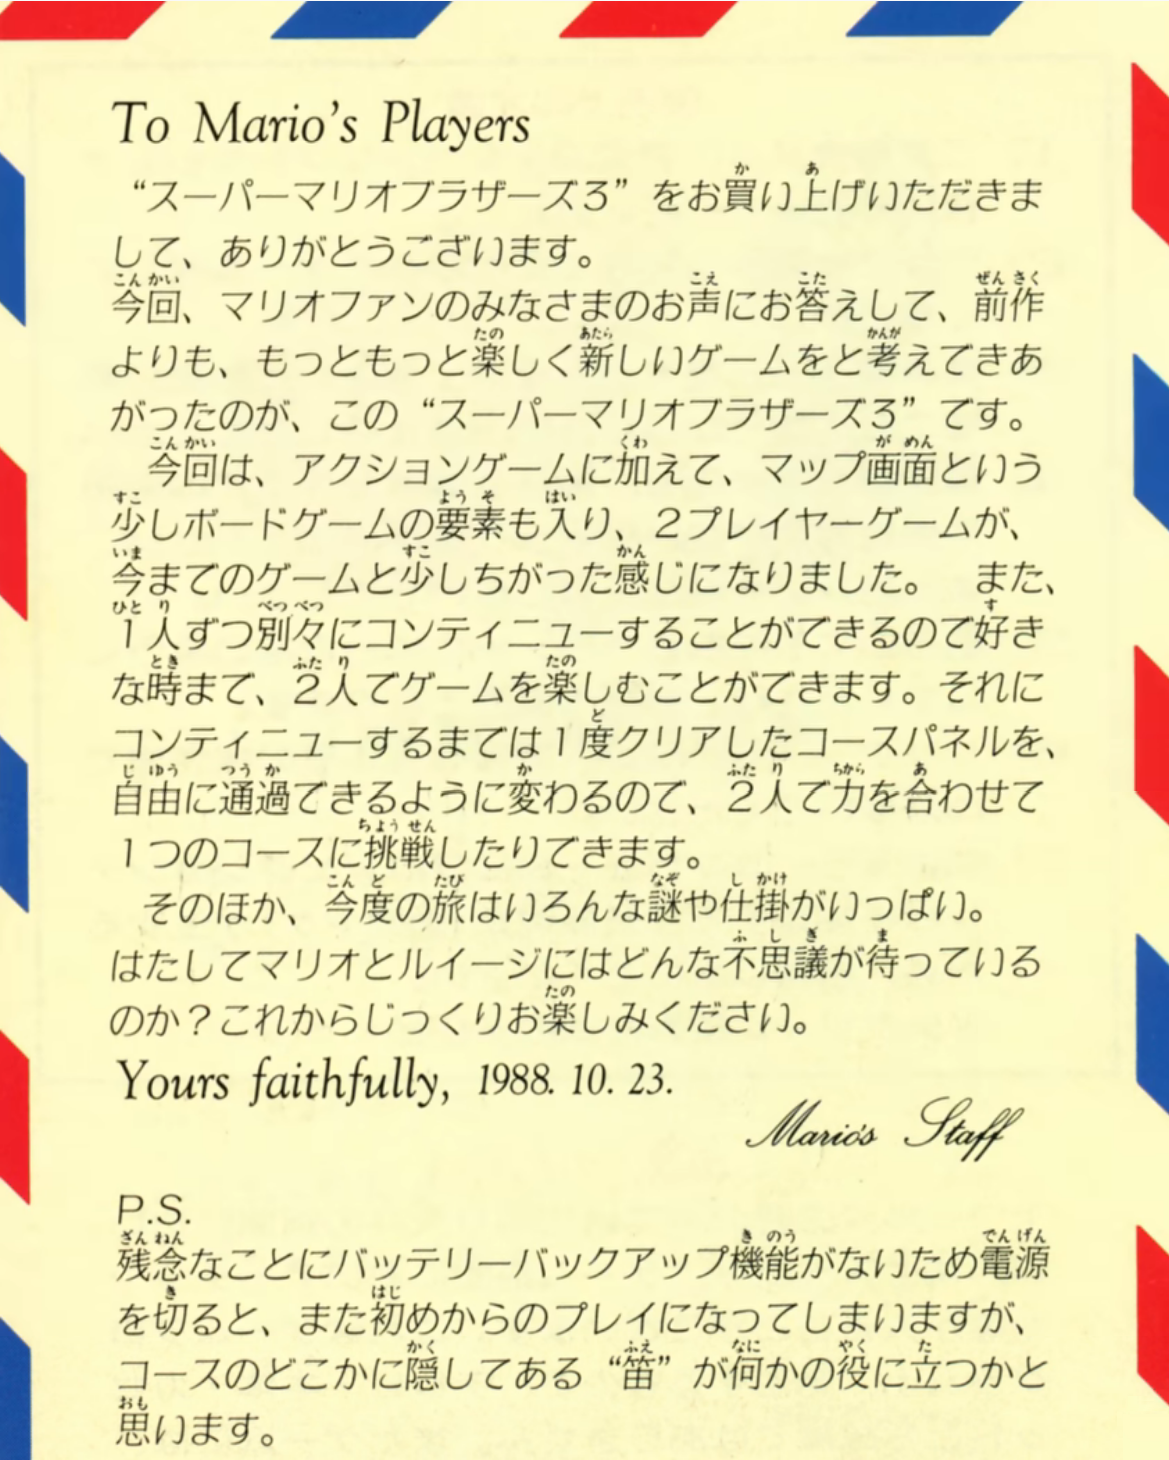 To Mario's Players
“スーパーマリオブラザーズ3”をお買い上げいただきま
して、ありがとうございます。
今回、マリオファンのみなさまのお声にお答えして、前作
よりも、もっともっと楽しく新しいゲームをと考えてできあ
がったのが、この“スーパーマリオブラザーズ3”です。
今回は、アクションゲームに加えて、マップ画面という
少しボードゲームの要素も入り、2プレイヤーゲームが、
今までのゲームと少しちがった感じになりました。　また、
1人ずつ別々にコンティニューすることができるので好き
な時まで、2人でゲームを楽しむことができます。それに
コンティニューするまでは1度クリアしたコースパネルを、
自由に通過できるように変わるので、2人で力を合わせて
1つのコースに挑戦したりできます。
そのほか、今度の旅はいろんな謎や仕掛がいっぱい。
はたしてマリオとルイージにはどんな不思議が待っている
のか？これからじっくりお楽しみください。
Yours faithfully, 1988. 10. 23.
Mario's Staff
P.S.
残念なことにバッテリーバックアップ機能がないため電源
を切ると、また初めからのプレイになってしまいますが、
コースのどこかに隠してある“笛”が何かの役に立つかと
思います。